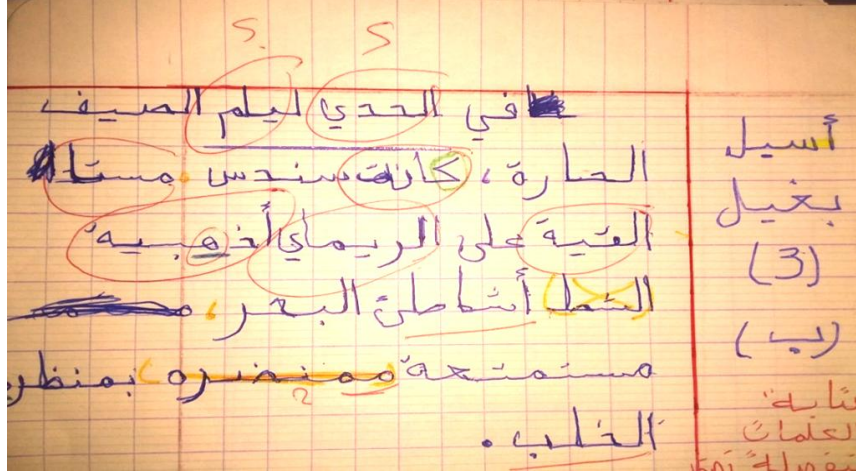 في الحدي ليلم الصيف
الحارة، كانة سندس مستا
القية على الريماي أذهبية
الشط أشاطئ البحر،
مستمتعة ممنضره بمنظر
الخلب.
أسيل
بغيل
(3)
(ب)